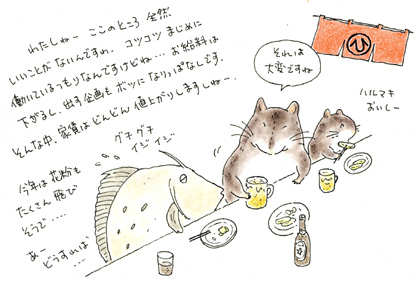 わたしねー ここのところ 全然
いいことがないんですわ。 コツコツ まじめに
働いているつもりなんですけどね… お給料は
下がるし、出す企画も ボツに なりっぱなしです。
そんな中、家賃はどんどん 値上がりしますしねー。
今年は 花粉も
たくさん 飛び
そうで‥‥
あー
どうすれば
‥‥
グチグチ
イジイジ
それは
大変ですね
ひ
ハルマキ
おいしー